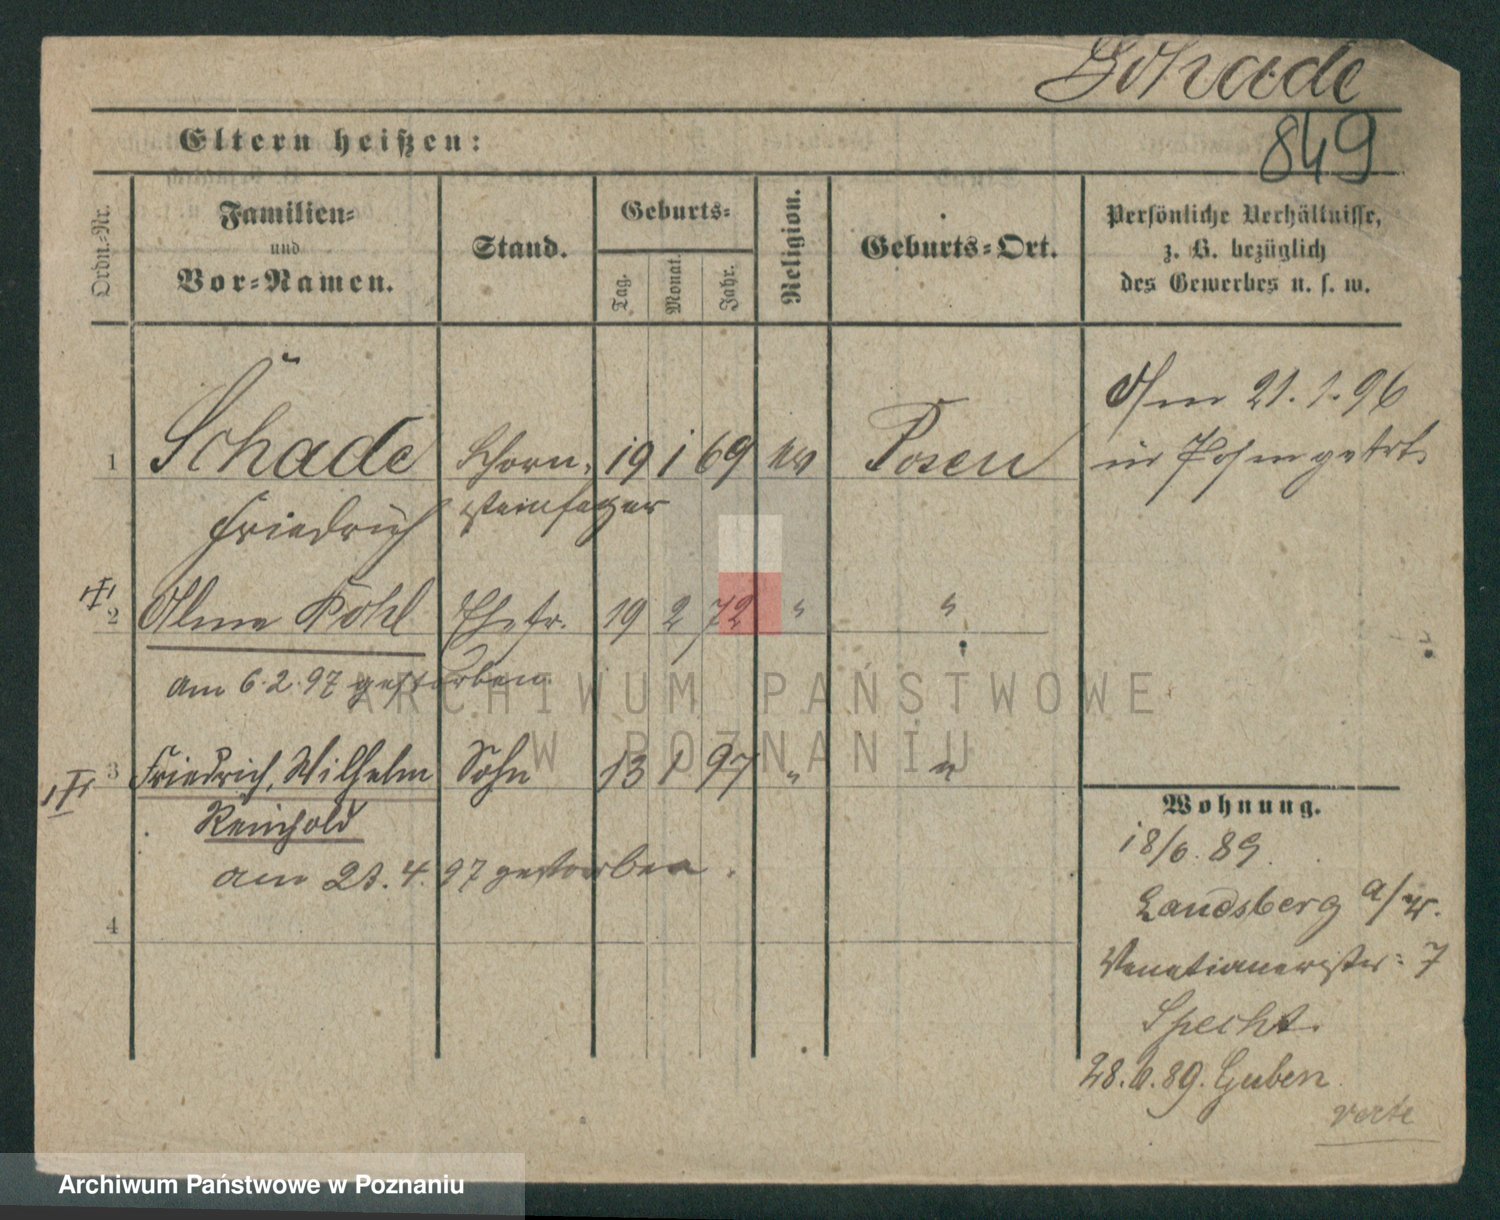 Schade
849
Eltern heißen:
Ordn.-Nr.
Familien-
und
Vor-Namen.
Stand.
Geburts-
Tag.
Monat.
Jahr.
Religion.
Geburts-Ort.
Persönliche Verhältnisse,
z. B. bezüglich
des Gewerbes u. s. w.
1 Schade Schorn- 19 1 69 ev Posen
Friedrich steinfeger
Am 21.1.96
in Posen getr.
2 Alma Pohl Ehefr. 19 2 72 " "
am 6.2.97 gestorben
3 Friedrich, Wilhelm Sohn 13 1 97 " "
Reinhold
am 23.4.97 gestorben.
4
Wohnung.
18/6.89.
Landsberg a/W.
Venetianerstr: 7
Specht.
28.6.89. Guben
verte
ARCHIWUM PAŃSTWOWE
W POZNANIU
Archiwum Państwowe w Poznaniu